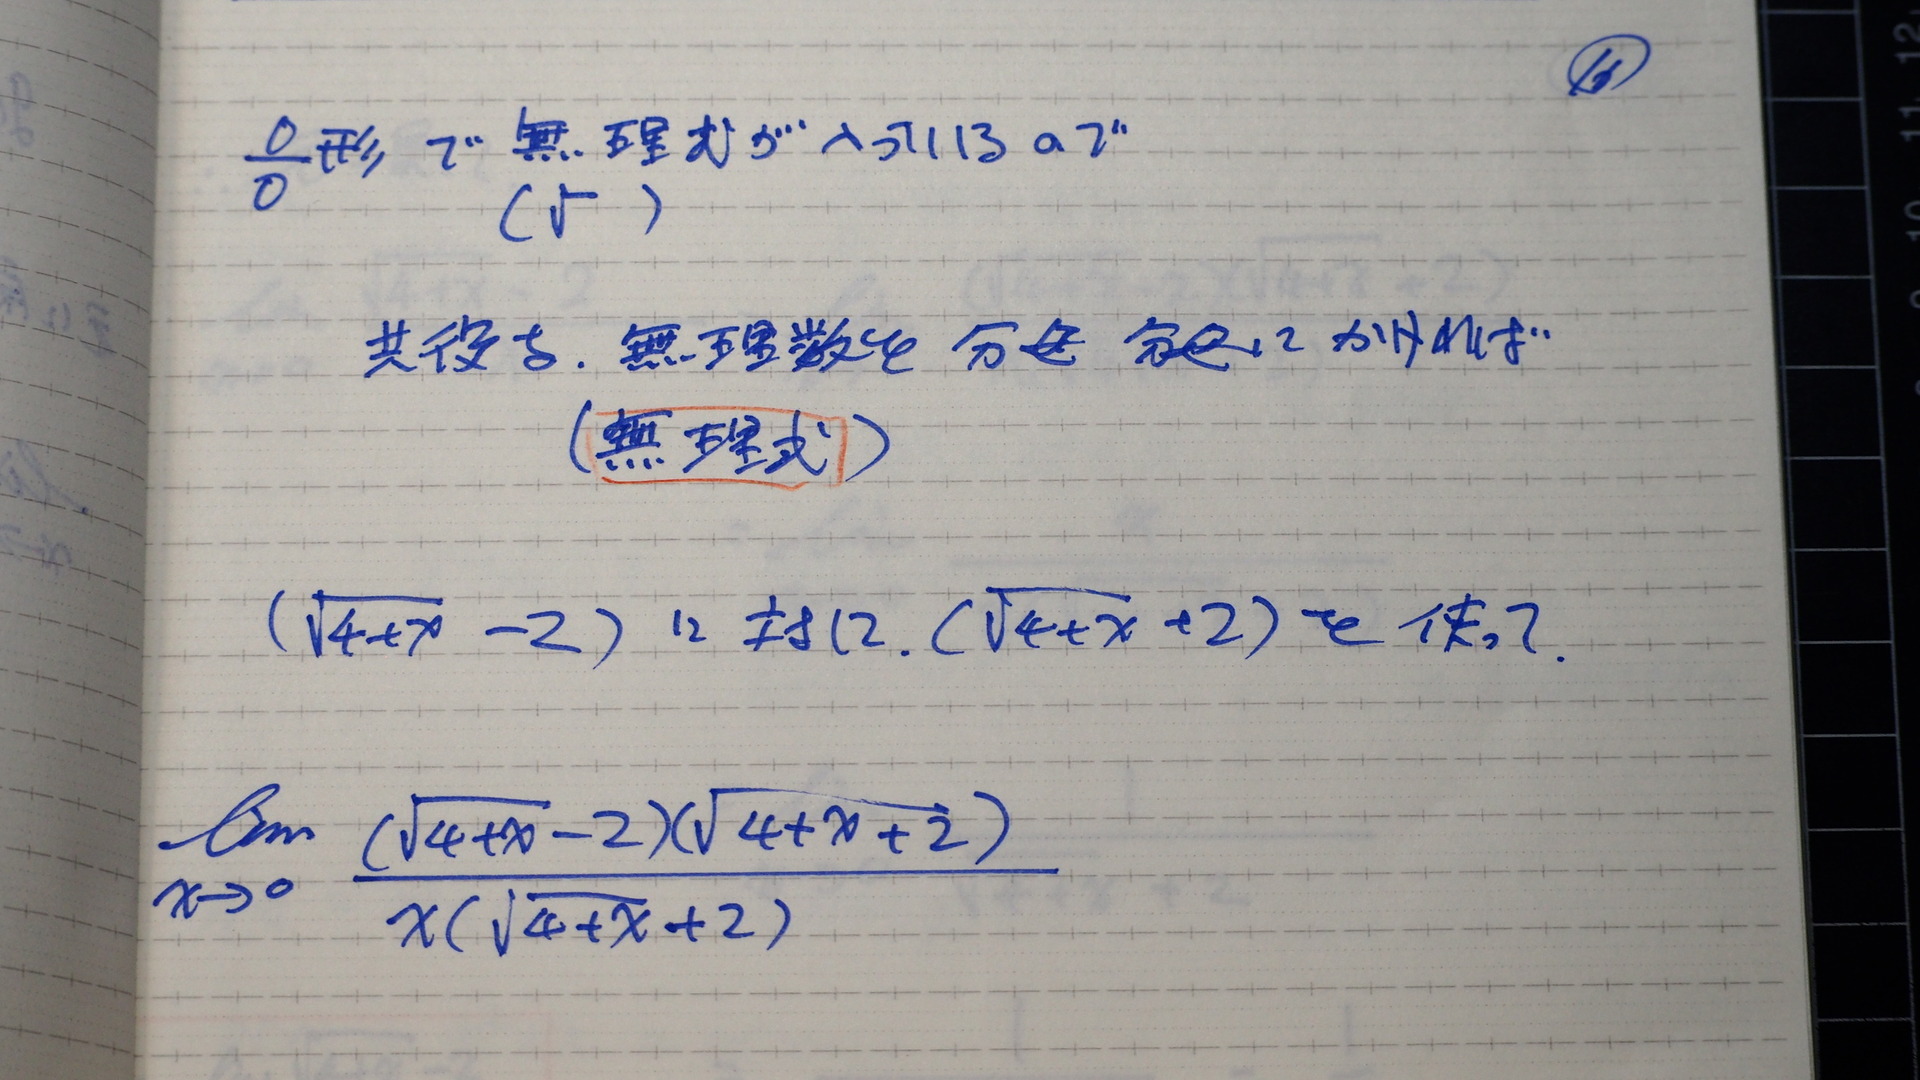 0/0 形 で 無理式が入っているので
(√ )
共役な. 無理数を 分母 分子に かければ
(無理式)
(√4+x -2) に対して. (√4+x +2) を使って.
lim x→0 (√4+x -2)(√4+x+2) / x(√4+x +2)
12
11
10